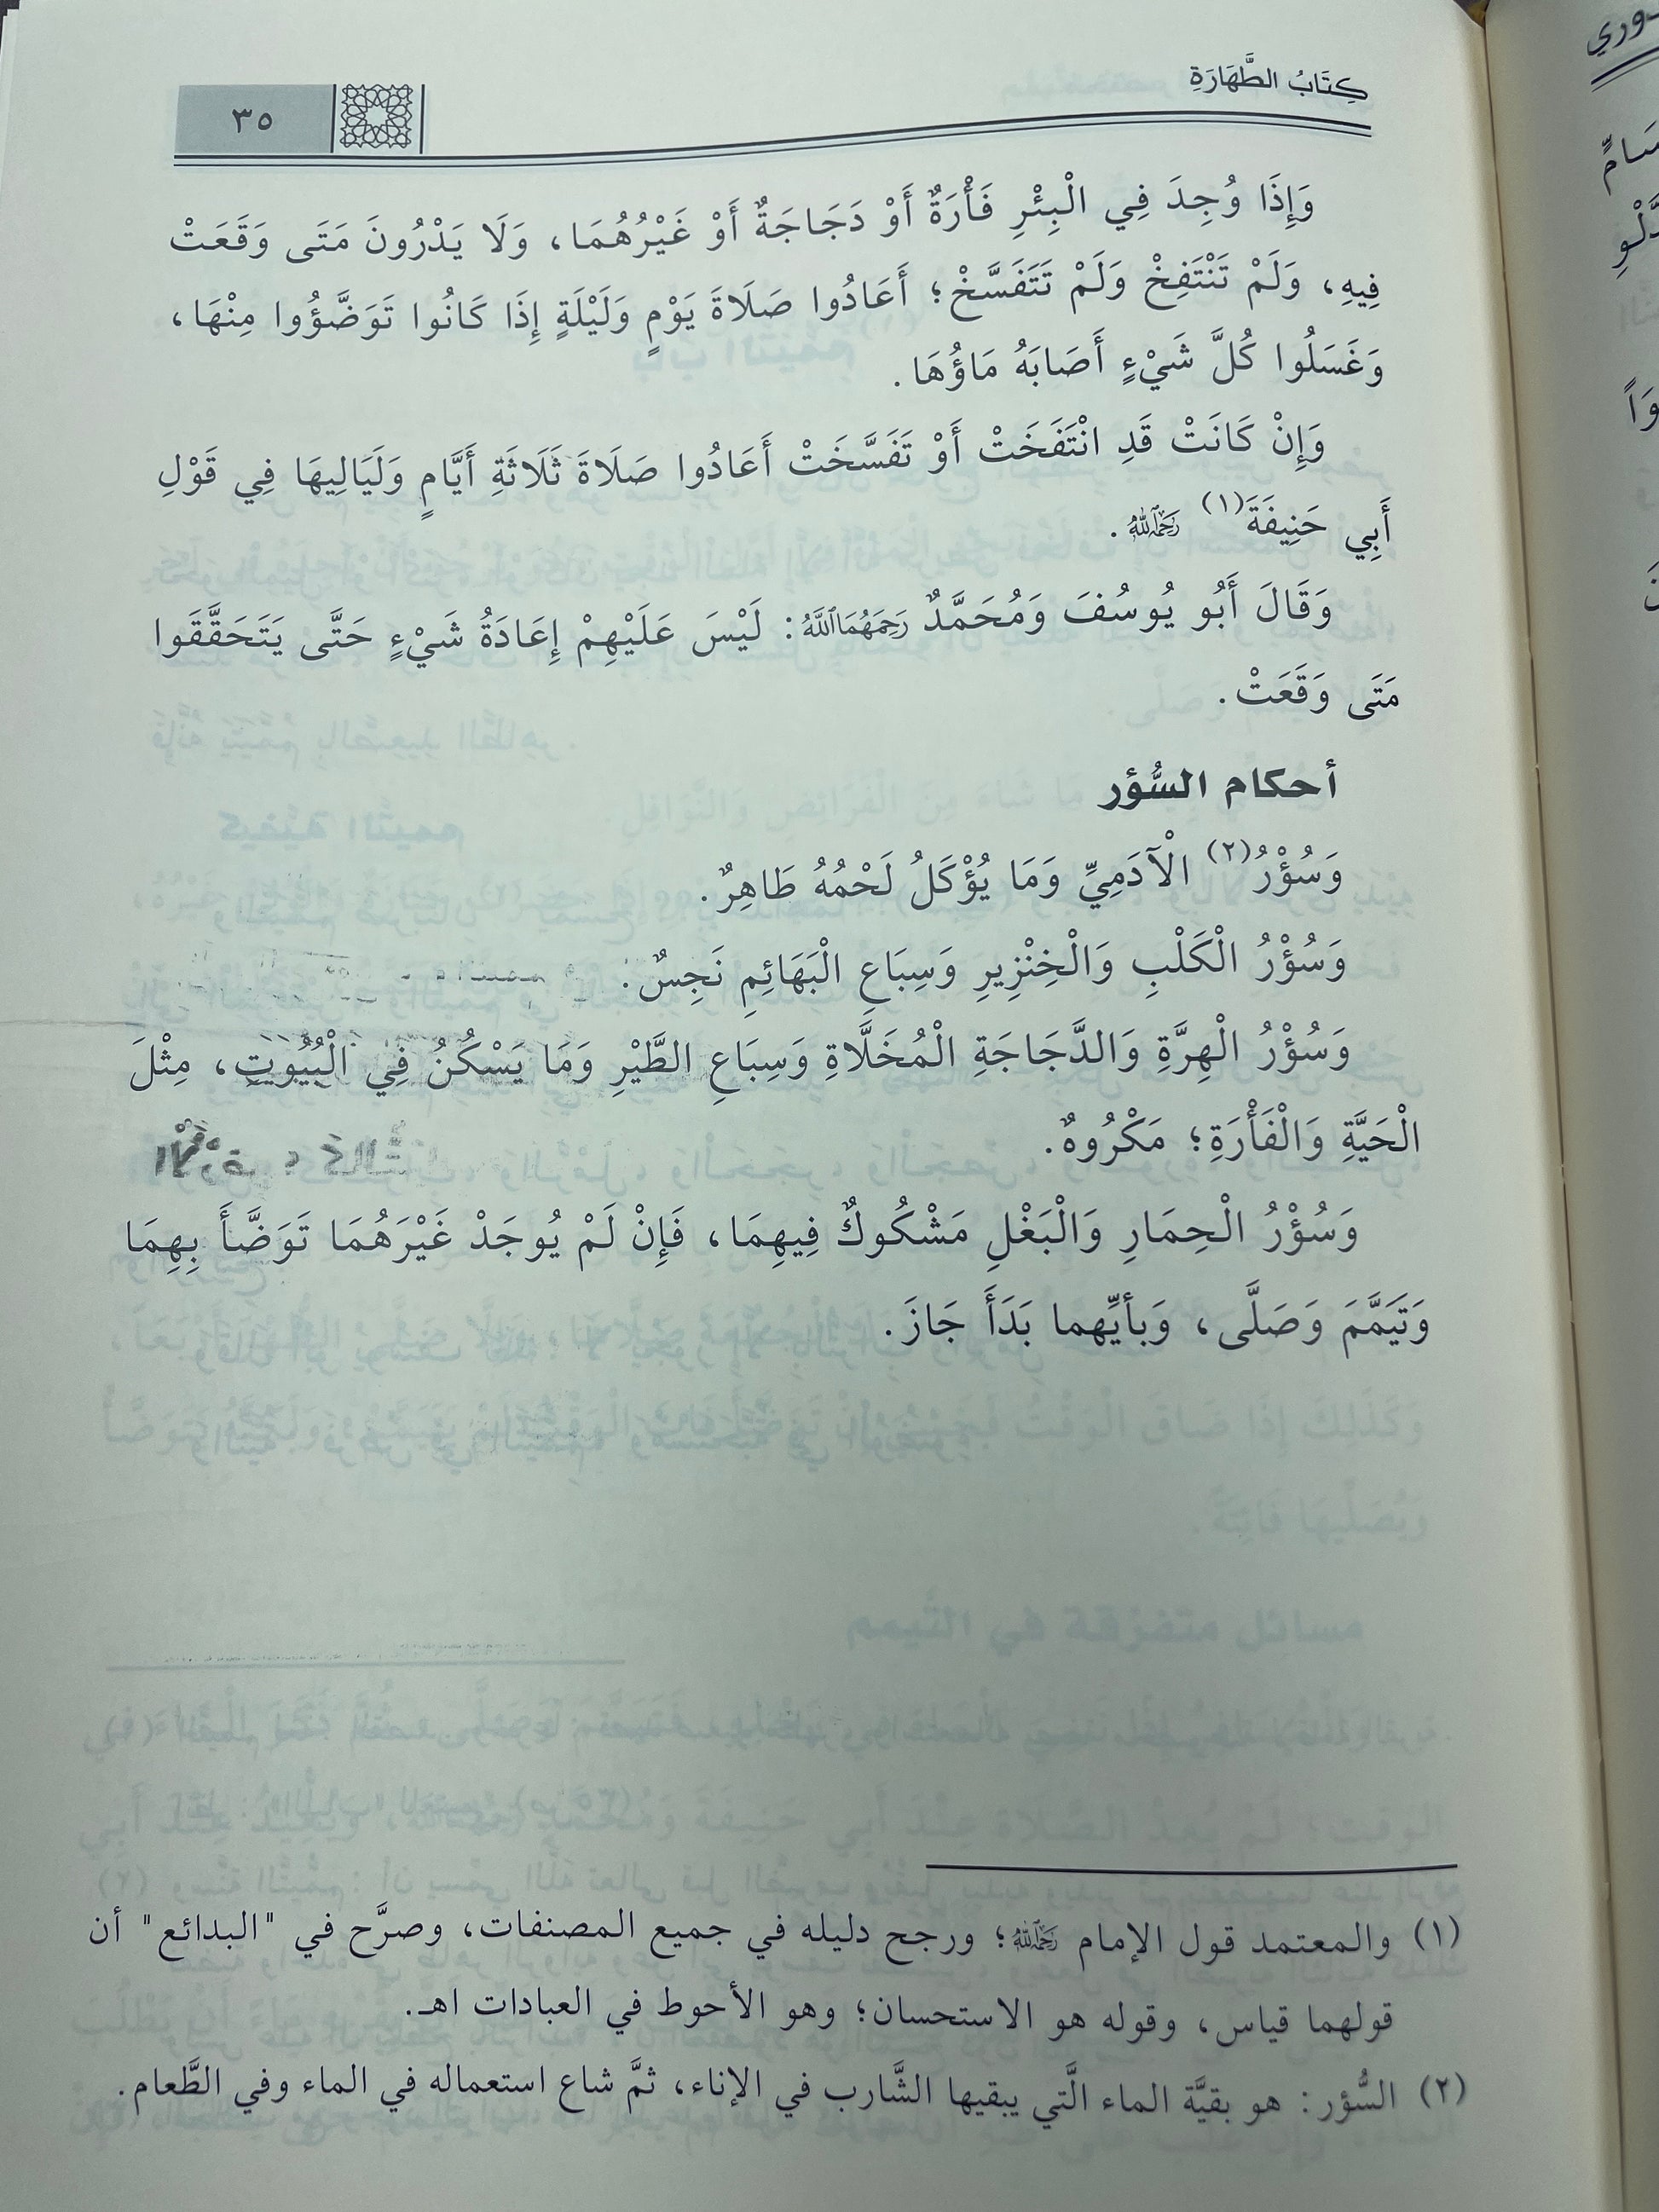 كِتَابُ الطَّهَارَةِ
٣٥
وَإِذَا وُجِدَ فِي الْبِئْرِ فَأْرَةٌ أَوْ دَجَاجَةٌ أَوْ غَيْرُهُمَا، وَلَا يَدْرُونَ مَتَى وَقَعَتْ
فِيهِ، وَلَمْ تَنْتَفِخْ وَلَمْ تَتَفَسَّخْ؛ أَعَادُوا صَلَاةَ يَوْمٍ وَلَيْلَةٍ إِذَا كَانُوا تَوَضَّؤُوا مِنْهَا،
وَغَسَلُوا كُلَّ شَيْءٍ أَصَابَهُ مَاؤُهَا.
وَإِنْ كَانَتْ قَدِ انْتَفَخَتْ أَوْ تَفَسَّخَتْ أَعَادُوا صَلَاةَ ثَلَاثَةِ أَيَّامٍ وَلَيَالِيهَا فِي قَوْلِ
أَبِي حَنِيفَةَ(١) رَحِمَهُ اللَّهُ.
وَقَالَ أَبُو يُوسُفَ وَمُحَمَّدٌ رَحِمَهُمَا اللَّهُ: لَيْسَ عَلَيْهِمْ إِعَادَةُ شَيْءٍ حَتَّى يَتَحَقَّقَوا
مَتَى وَقَعَتْ.
أحكام السُّؤر
وَسُؤْرُ(٢) الْآدَمِيِّ وَمَا يُؤْكَلُ لَحْمُهُ طَاهِرٌ.
وَسُؤْرُ الْكَلْبِ وَالْخِنْزِيرِ وَسِبَاعِ الْبَهَائِمِ نَجِسٌ.
وَسُؤْرُ الْهِرَّةِ وَالدَّجَاجَةِ الْمُخَلَّاةِ وَسِبَاعِ الطَّيْرِ وَمَا يَسْكُنُ فِي الْبُيُوتِ، مِثْلَ
الْحَيَّةِ وَالْفَأْرَةِ؛ مَكْرُوهٌ.
وَسُؤْرُ الْحِمَارِ وَالْبَغْلِ مَشْكُوكٌ فِيهِمَا، فَإِنْ لَمْ يُوجَدْ غَيْرَهُمَا تَوَضَّأَ بِهِمَا
وَتَيَمَّمَ وَصَلَّى، وَبأيِّهما بَدَأَ جَازَ.
(١) والمعتمد قول الإمام رَحِمَهُ اللَّهُ؛ ورجح دليله في جميع المصنفات، وصرَّح في "البدائع" أن
قولهما قياس، وقوله هو الاستحسان؛ وهو الأحوط في العبادات اهـ.
(٢) السُّؤر: هو بقيَّة الماء الَّتي يبقيها الشَّارب في الإناء، ثمَّ شاع استعماله في الماء وفي الطَّعام.